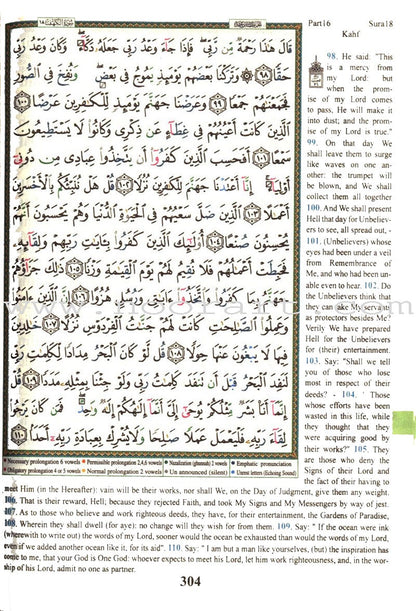 Part16 Sura18
Kahf
قَالَ هَٰذَا رَحْمَةٌ مِّن رَّبِّي فَإِذَا جَآءَ وَعْدُ رَبِّي جَعَلَهُۥ دَكَّآءَ وَكَانَ وَعْدُ رَبِّي
حَقًّا ٩٨ وَتَرَكْنَا بَعْضَهُمْ يَوْمَئِذٍ يَمُوجُ فِي بَعْضٍ وَنُفِخَ فِي ٱلصُّورِ
فَجَمَعْنَٰهُمْ جَمْعًا ٩٩ وَعَرَضْنَا جَهَنَّمَ يَوْمَئِذٍ لِّلْكَٰفِرِينَ عَرْضًا ١٠٠
ٱلَّذِينَ كَانَتْ أَعْيُنُهُمْ فِي غِطَآءٍ عَن ذِكْرِي وَكَانُوا۟ لَا يَسْتَطِيعُونَ
سَمْعًا ١٠١ أَفَحَسِبَ ٱلَّذِينَ كَفَرُوٓا۟ أَن يَتَّخِذُوا۟ عِبَادِي مِن دُونِيٓ
أَوْلِيَآءَ إِنَّآ أَعْتَدْنَا جَهَنَّمَ لِلْكَٰفِرِينَ نُزُلًا ١٠٢ قُلْ هَلْ نُنَبِّئُكُم بِٱلْأَخْسَرِينَ
أَعْمَٰلًا ١٠٣ ٱلَّذِينَ ضَلَّ سَعْيُهُمْ فِي ٱلْحَيَوٰةِ ٱلدُّنْيَا وَهُمْ يَحْسَبُونَ أَنَّهُمْ
يُحْسِنُونَ صُنْعًا ١٠٤ أُو۟لَٰٓئِكَ ٱلَّذِينَ كَفَرُوا۟ بِـَٔايَٰتِ رَبِّهِمْ وَلِقَآئِهِۦ
فَحَبِطَتْ أَعْمَٰلُهُمْ فَلَا نُقِيمُ لَهُمْ يَوْمَ ٱلْقِيَٰمَةِ وَزْنًا ١٠٥ ذَٰلِكَ جَزَآؤُهُمْ
جَهَنَّمُ بِمَا كَفَرُوا۟ وَٱتَّخَذُوٓا۟ ءَايَٰتِي وَرُسُلِي هُزُوًا ١٠٦ إِنَّ ٱلَّذِينَ ءَامَنُوا۟
وَعَمِلُوا۟ ٱلصَّٰلِحَٰتِ كَانَتْ لَهُمْ جَنَّٰتُ ٱلْفِرْدَوْسِ نُزُلًا ١٠٧ خَٰلِدِينَ
فِيهَا لَا يَبْغُونَ عَنْهَا حِوَلًا ١٠٨ قُل لَّوْ كَانَ ٱلْبَحْرُ مِدَادًا لِّكَلِمَٰتِ رَبِّي
لَنَفِدَ ٱلْبَحْرُ قَبْلَ أَن تَنفَدَ كَلِمَٰتُ رَبِّي وَلَوْ جِئْنَا بِمِثْلِهِۦ مَدَدًا ١٠٩ قُلْ
إِنَّمَآ أَنَا۠ بَشَرٌ مِّثْلُكُمْ يُوحَىٰٓ إِلَيَّ أَنَّمَآ إِلَٰهُكُمْ إِلَٰهٌ وَٰحِدٌ فَمَن كَانَ يَرْجُوا۟
لِقَآءَ رَبِّهِۦ فَلْيَعْمَلْ عَمَلًا صَٰلِحًا وَلَا يُشْرِكْ بِعِبَادَةِ رَبِّهِۦٓ أَحَدًۢا ١١٠
Necessary prolongation 6 vowels Permissible prolongation 2,4,6 vowels Nazalization (ghunnah) 2 vowels Emphatic pronunciation
Obligatory prolongation 4 or 5 vowels Normal prolongation 2 vowels Un announced (silent) Unrest letters (Echoing Sound)
98. He said: "This
is a mercy from
my Lord: but
when the prom-
ise of my Lord comes
to pass, He will make it
into dust; and the prom-
ise of my Lord is true."
99. On that day We
shall leave them to surge
like waves on one an-
other: the trumpet will
be blown, and We shall
collect them all together
100. And We shall present
Hell that day for Unbeliev-
ers to see, all spread out, -
101. (Unbelievers) whose
eyes had been under a veil
from Remembrance of
Me, and who had been un-
able even to hear. 102. Do
the Unbelievers think that
they can take My servants
as protectors besides Me?
Verily We have prepared
Hell for the Unbelievers
for (their) entertainment.
103. Say: "Shall we tell
you of those who lose
most in respect of their
deeds? - 104. ' Those
whose efforts have been
wasted in this life, while
they thought that they
were acquiring good by
their works?" 105. They
are those who deny the
Signs of their Lord and
the fact of their having to
meet Him (in the Hereafter): vain will be their works, nor shall We, on the Day of Judgment, give them any weight.
106. That is their reward, Hell; because they rejected Faith, and took My Signs and My Messengers by way of jest.
107. As to those who believe and work righteous deeds, they have, for their entertainment, the Gardens of Paradise,
108. Wherein they shall dwell (for aye): no change will they wish for from them. 109. Say: " If the ocean were ink
(wherewith to write out) the words of my Lord, sooner would the ocean be exhausted than would the words of my Lord,
even if we added another ocean like it, for its aid". 110. Say: " I am but a man like yourselves, (but) the inspiration has
come to me, that your God is One God: whoever expects to meet his Lord, let him work righteousness, and, in the wor-
ship of his Lord, admit no one as partner.
304